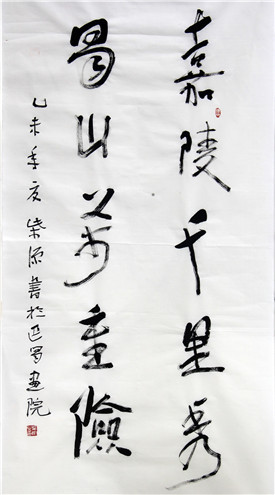 嘉陵千里秀
蜀山万重险
乙未年夏紫源书於巴蜀画院